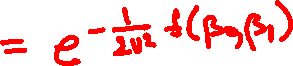 = e^{-\frac{1}{2υ^2} f(β_0, β_1)}